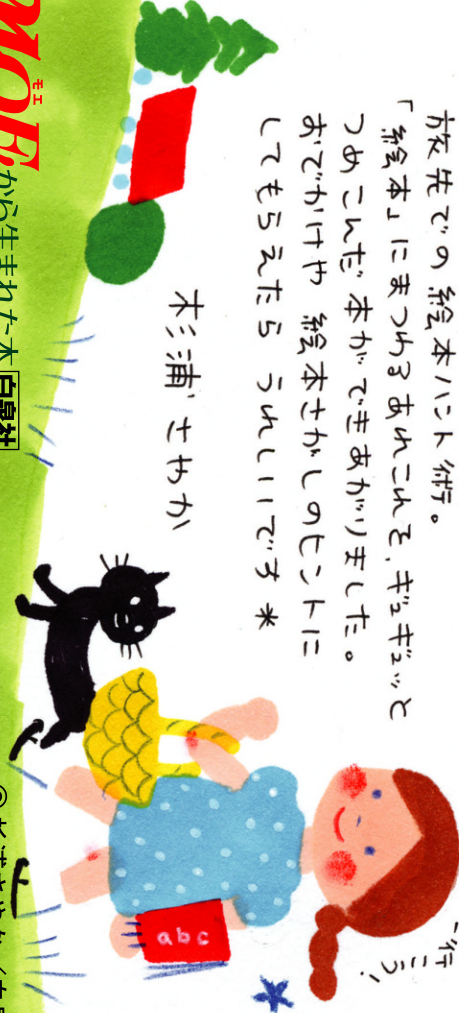 旅先での絵本ハント術。
「絵本」にまつわるあれこれを、ギュギュッと
つめこんだ本ができあがりました。
おでかけや 絵本さがしのヒントに
してもらえたら うれしいです*
杉浦さやか
行こう!
abc
モエ
MOEから生まれた本 白泉社